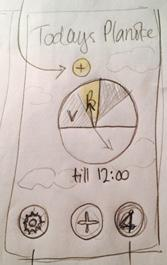 Todays Planite
+
V
k
till 12:00
+
4